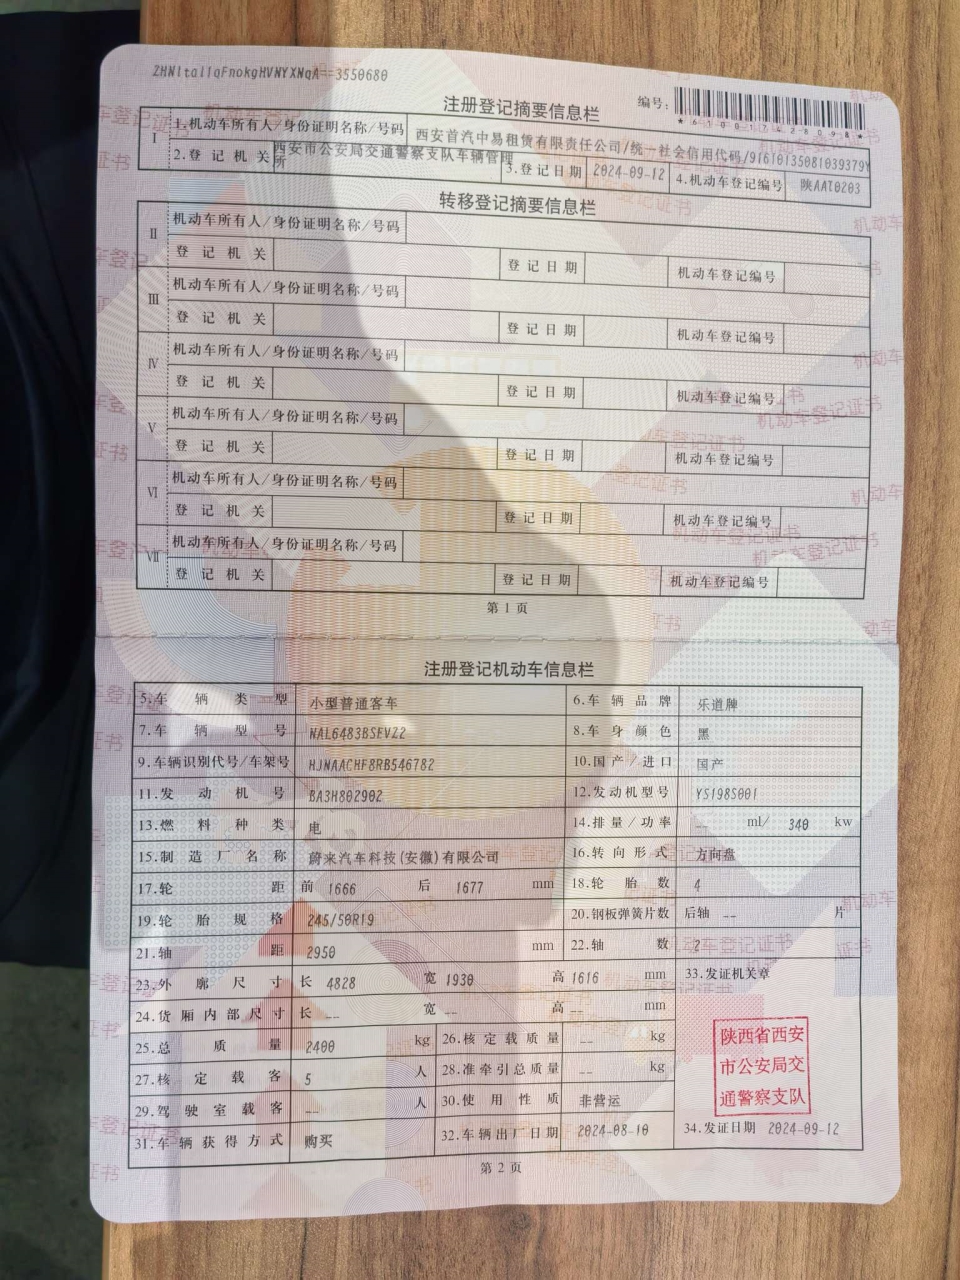 ZHNltal1qFnokgHVNYXNqA==3550680
注册登记摘要信息栏
编号:
★610017428098★
I 1.机动车所有人/身份证明名称/号码 西安首汽中易租赁有限责任公司/统一社会信用代码/91610135081039379Y
2.登记机关 西安市公安局交通警察支队车辆管理所 3.登记日期 2024-09-12 4.机动车登记编号 陕AAT0203
转移登记摘要信息栏
II 机动车所有人/身份证明名称/号码
登记机关 登记日期 机动车登记编号
III 机动车所有人/身份证明名称/号码
登记机关 登记日期 机动车登记编号
IV 机动车所有人/身份证明名称/号码
登记机关 登记日期 机动车登记编号
V 机动车所有人/身份证明名称/号码
登记机关 登记日期 机动车登记编号
VI 机动车所有人/身份证明名称/号码
登记机关 登记日期 机动车登记编号
VII 机动车所有人/身份证明名称/号码
登记机关 登记日期 机动车登记编号
第1页
注册登记机动车信息栏
5.车辆类型 小型普通客车 6.车辆品牌 乐道牌
7.车辆型号 NAL6483BSEVZ2 8.车身颜色 黑
9.车辆识别代号/车架号 HJNAACHF8RB546782 10.国产/进口 国产
11.发动机号 BA3H802902 12.发动机型号 YS198S001
13.燃料种类 电 14.排量/功率 -- ml/ 340 kw
15.制造厂名称 蔚来汽车科技(安徽)有限公司 16.转向形式 方向盘
17.轮距 前 1666 后 1677 mm 18.轮胎数 4
19.轮胎规格 245/50R19 20.钢板弹簧片数 后轴 -- 片
21.轴距 2950 mm 22.轴数 2
23.外廓尺寸 长 4828 宽 1930 高 1616 mm 33.发证机关章
24.货厢内部尺寸 长 -- 宽 -- 高 -- mm
25.总质量 2400 kg 26.核定载质量 -- kg
27.核定载客 5 人 28.准牵引总质量 -- kg
29.驾驶室载客 -- 人 30.使用性质 非营运
31.车辆获得方式 购买 32.车辆出厂日期 2024-08-10 34.发证日期 2024-09-12
陕西省西安
市公安局交
通警察支队
第2页